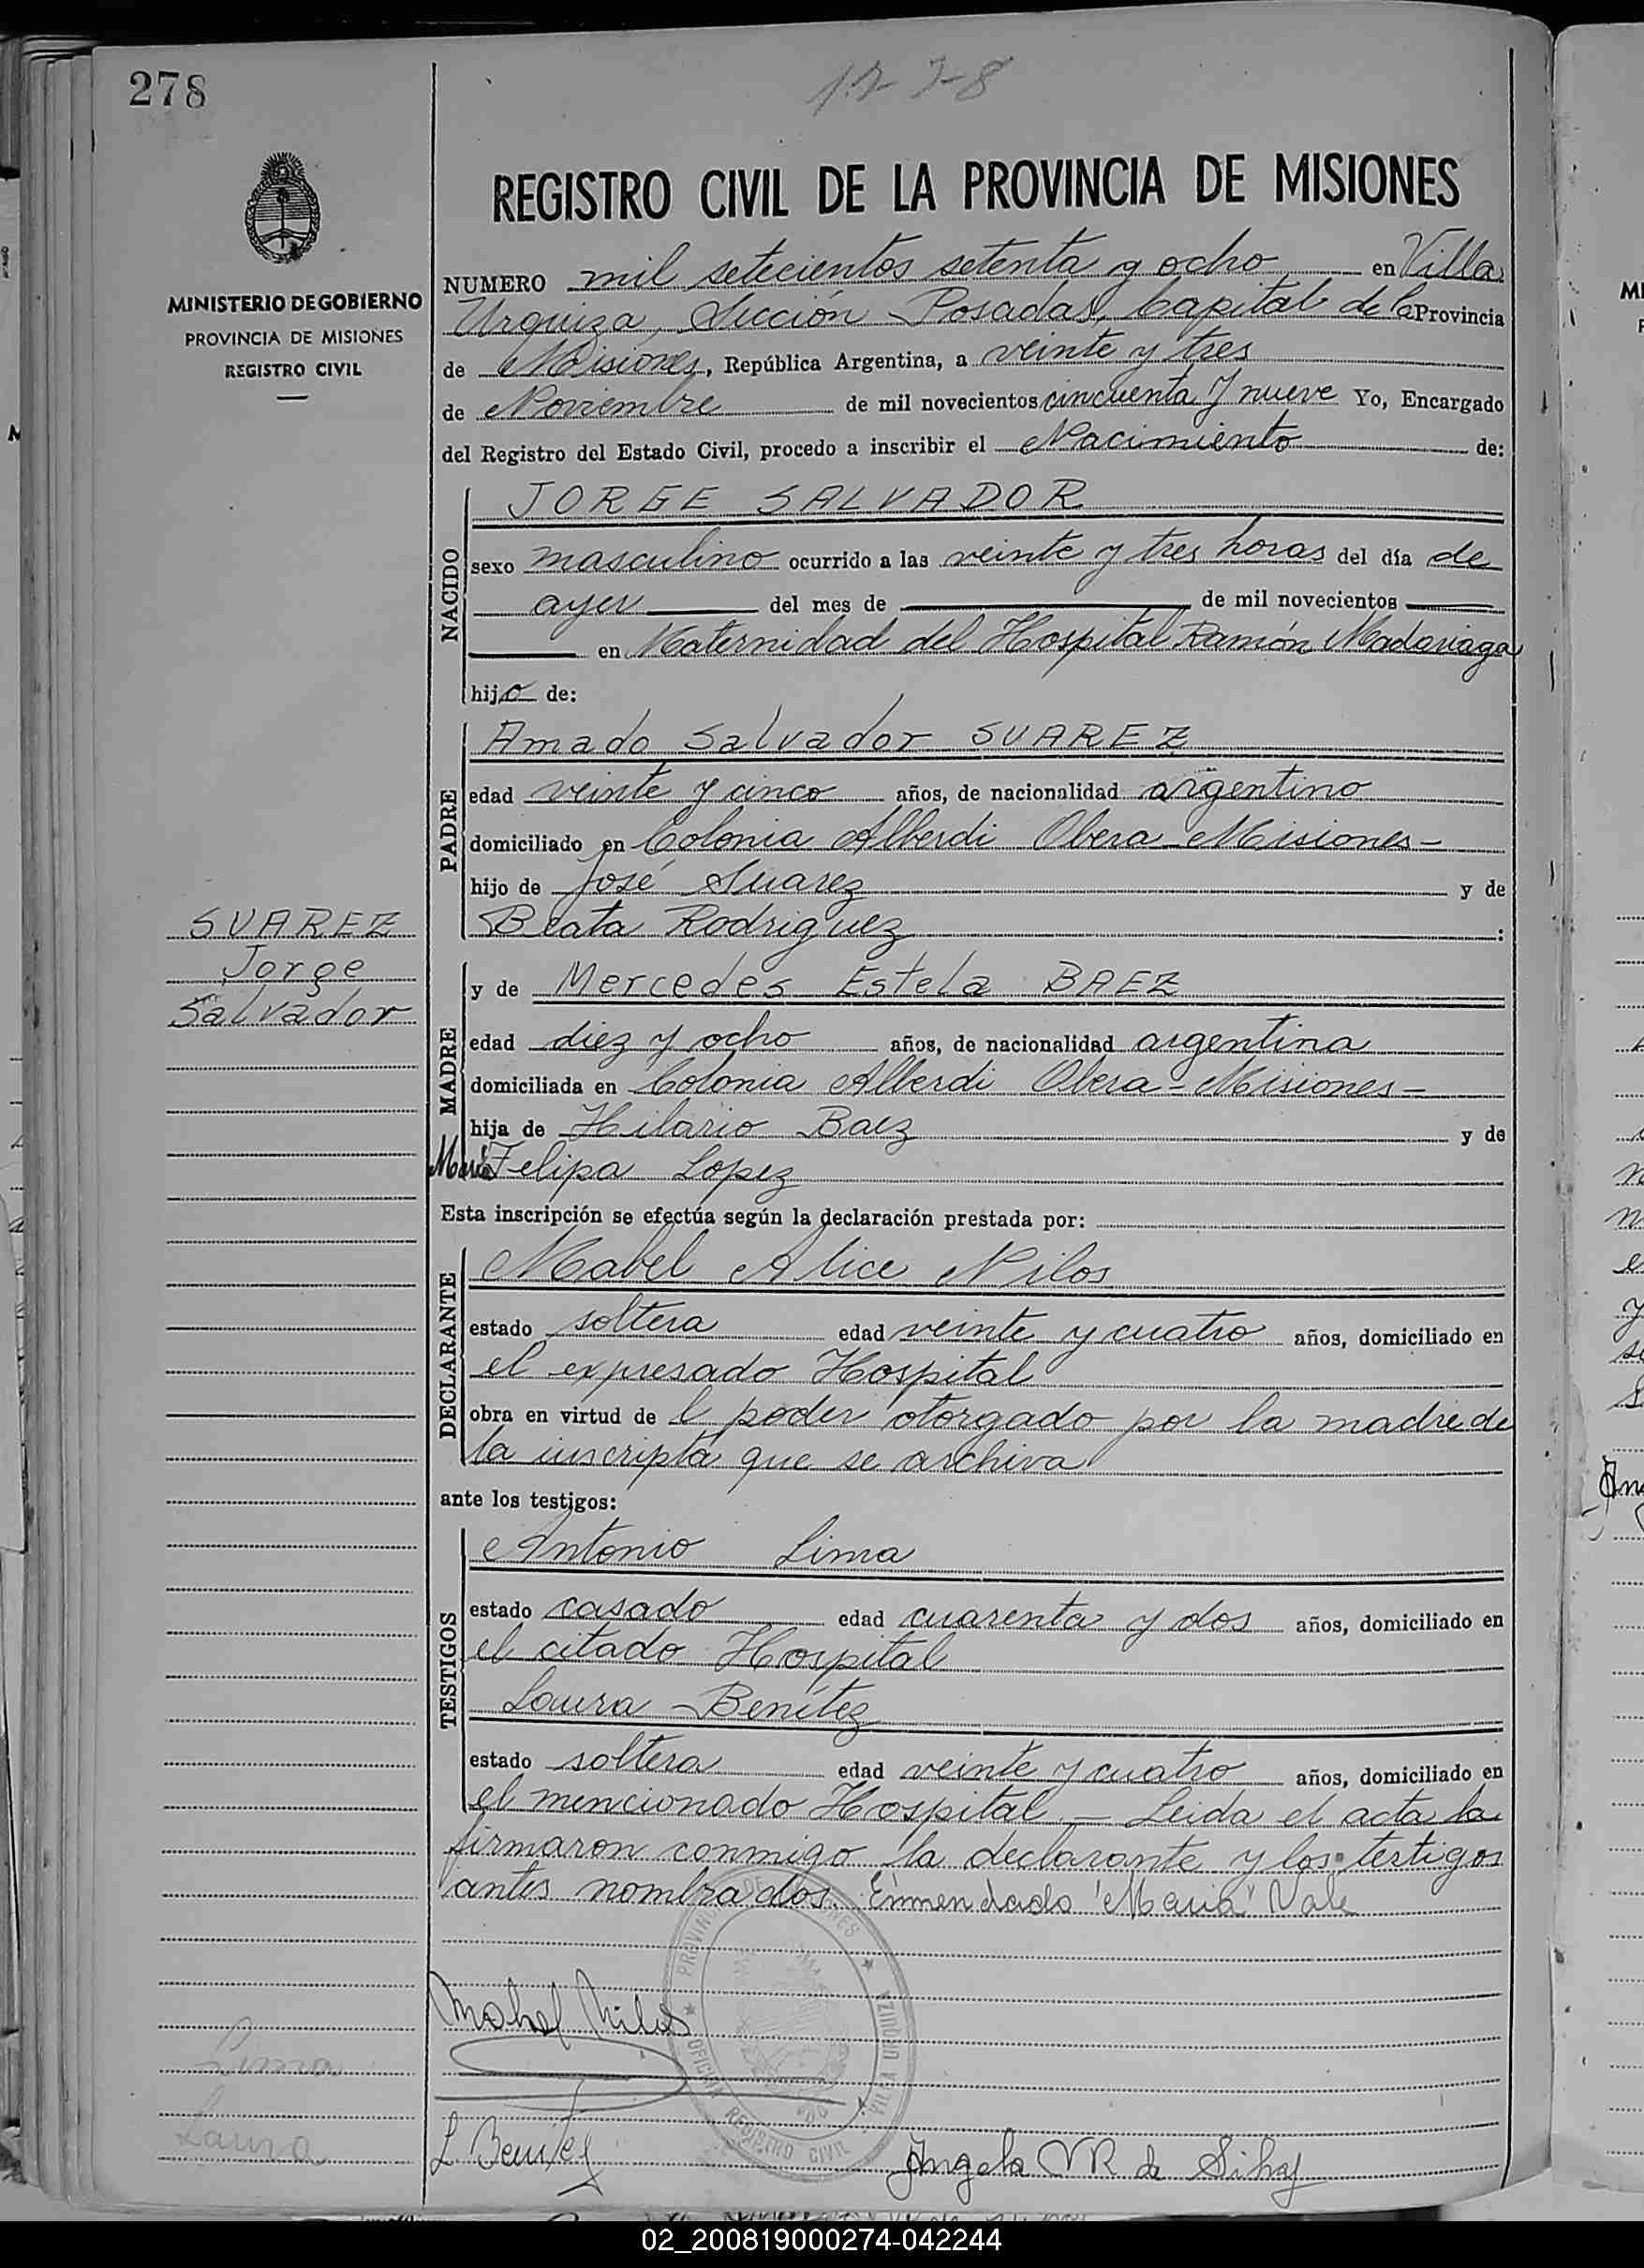 278
17-7-8
REGISTRO CIVIL DE LA PROVINCIA DE MISIONES
MINISTERIO DE GOBIERNO
PROVINCIA DE MISIONES
REGISTRO CIVIL
NUMERO mil setecientos setenta y ocho en Villa
Urquiza, Sección Posadas, Capital de la Provincia
de Misiones, República Argentina, a veinte y tres
de Noviembre de mil novecientos cincuenta y nueve Yo, Encargado
del Registro del Estado Civil, procedo a inscribir el Nacimiento de:
NACIDO
JORGE SALVADOR
sexo masculino ocurrido a las veinte y tres horas del día de
ayer del mes de de mil novecientos
en Maternidad del Hospital Ramón Madariaga
hijo de:
PADRE
Amado Salvador SUAREZ
edad veinte y cinco años, de nacionalidad argentino
domiciliado en Colonia Alberdi Obera Misiones-
hijo de José Suarez y de
Beata Rodriguez :
SUAREZ
Jorge
Salvador
MADRE
y de Mercedes Estela BAEZ
edad diez y ocho años, de nacionalidad argentina
domiciliada en Colonia Alberdi Obera - Misiones-
hija de Hilario Baez y de
María Felipa Lopez
Esta inscripción se efectúa según la declaración prestada por:
DECLARANTE
Mabel Alice Nilos
estado soltera edad veinte y cuatro años, domiciliado en
el expresado Hospital
obra en virtud de l poder otorgado por la madre de
la inscripta que se archiva
ante los testigos:
TESTIGOS
Antonio Lima
estado casado edad cuarenta y dos años, domiciliado en
el citado Hospital
Laura Benítez
estado soltera edad veinte y cuatro años, domiciliado en
el mencionado Hospital - Leida el acta la
firmaron conmigo la declarante y los testigos
antes nombrados. Enmendado "María" Vale
PROVINCIA DE MISIONES
VILLA URQUIZA
OFICINA REGISTRO CIVIL
Mabel Nilos
Lima
Laura
L. Benítez
Angela VR de Silva
02_200819000274-042244